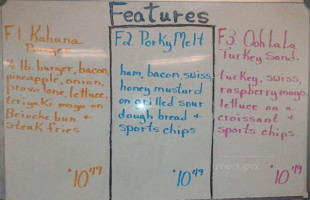 Features
F1. Kahuna
Burger
½ lb. burger, bacon,
pineapple, onion,
provolone, lettuce,
teriyaki mayo on
Brioche bun +
steak fries
$10.49
F2. Porky Melt
ham, bacon, swiss,
honey mustard
on grilled sour
dough bread +
sports chips
$10.49
F3. Ooh LaLa
Turkey Sand.
turkey, swiss,
raspberry mayo,
lettuce on a
croissant +
sports chips
$10.49